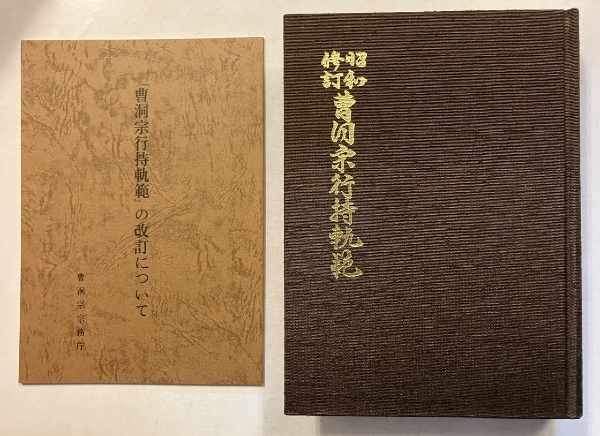 曹洞宗行持軌範の改訂について
曹洞宗宗務庁
昭和
修訂
曹洞宗行持軌範